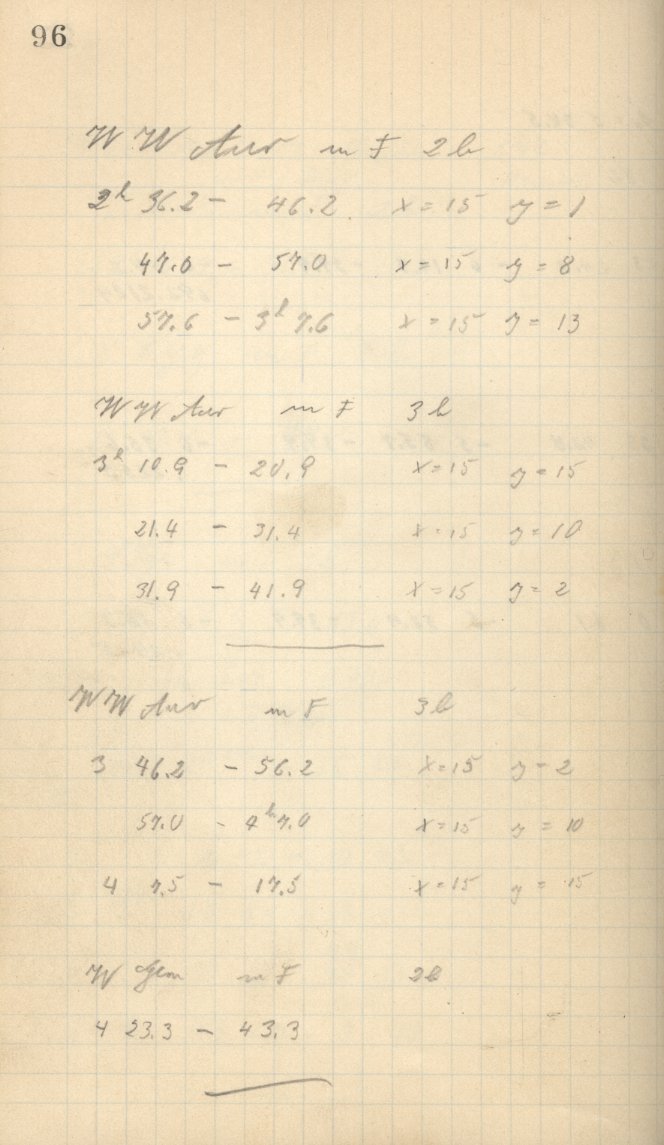 96
WW Aur m F 2b
2h 36.2 - 46.2 x = 15 y = 1
47.0 - 57.0 x = 15 y = 8
57.6 - 3h 7.6 x = 15 y = 13
WW Aur m F 3b
3h 10.9 - 20.9 x = 15 y = 15
21.4 - 31.4 x = 15 y = 10
31.9 - 41.9 x = 15 y = 2
WW Aur m F 3b
3 46.2 - 56.2 x = 15 y = 2
57.0 - 4h 7.0 x = 15 y = 10
4 7.5 - 17.5 x = 15 y = 15
W Gem m F 2b
4 23.3 - 43.3